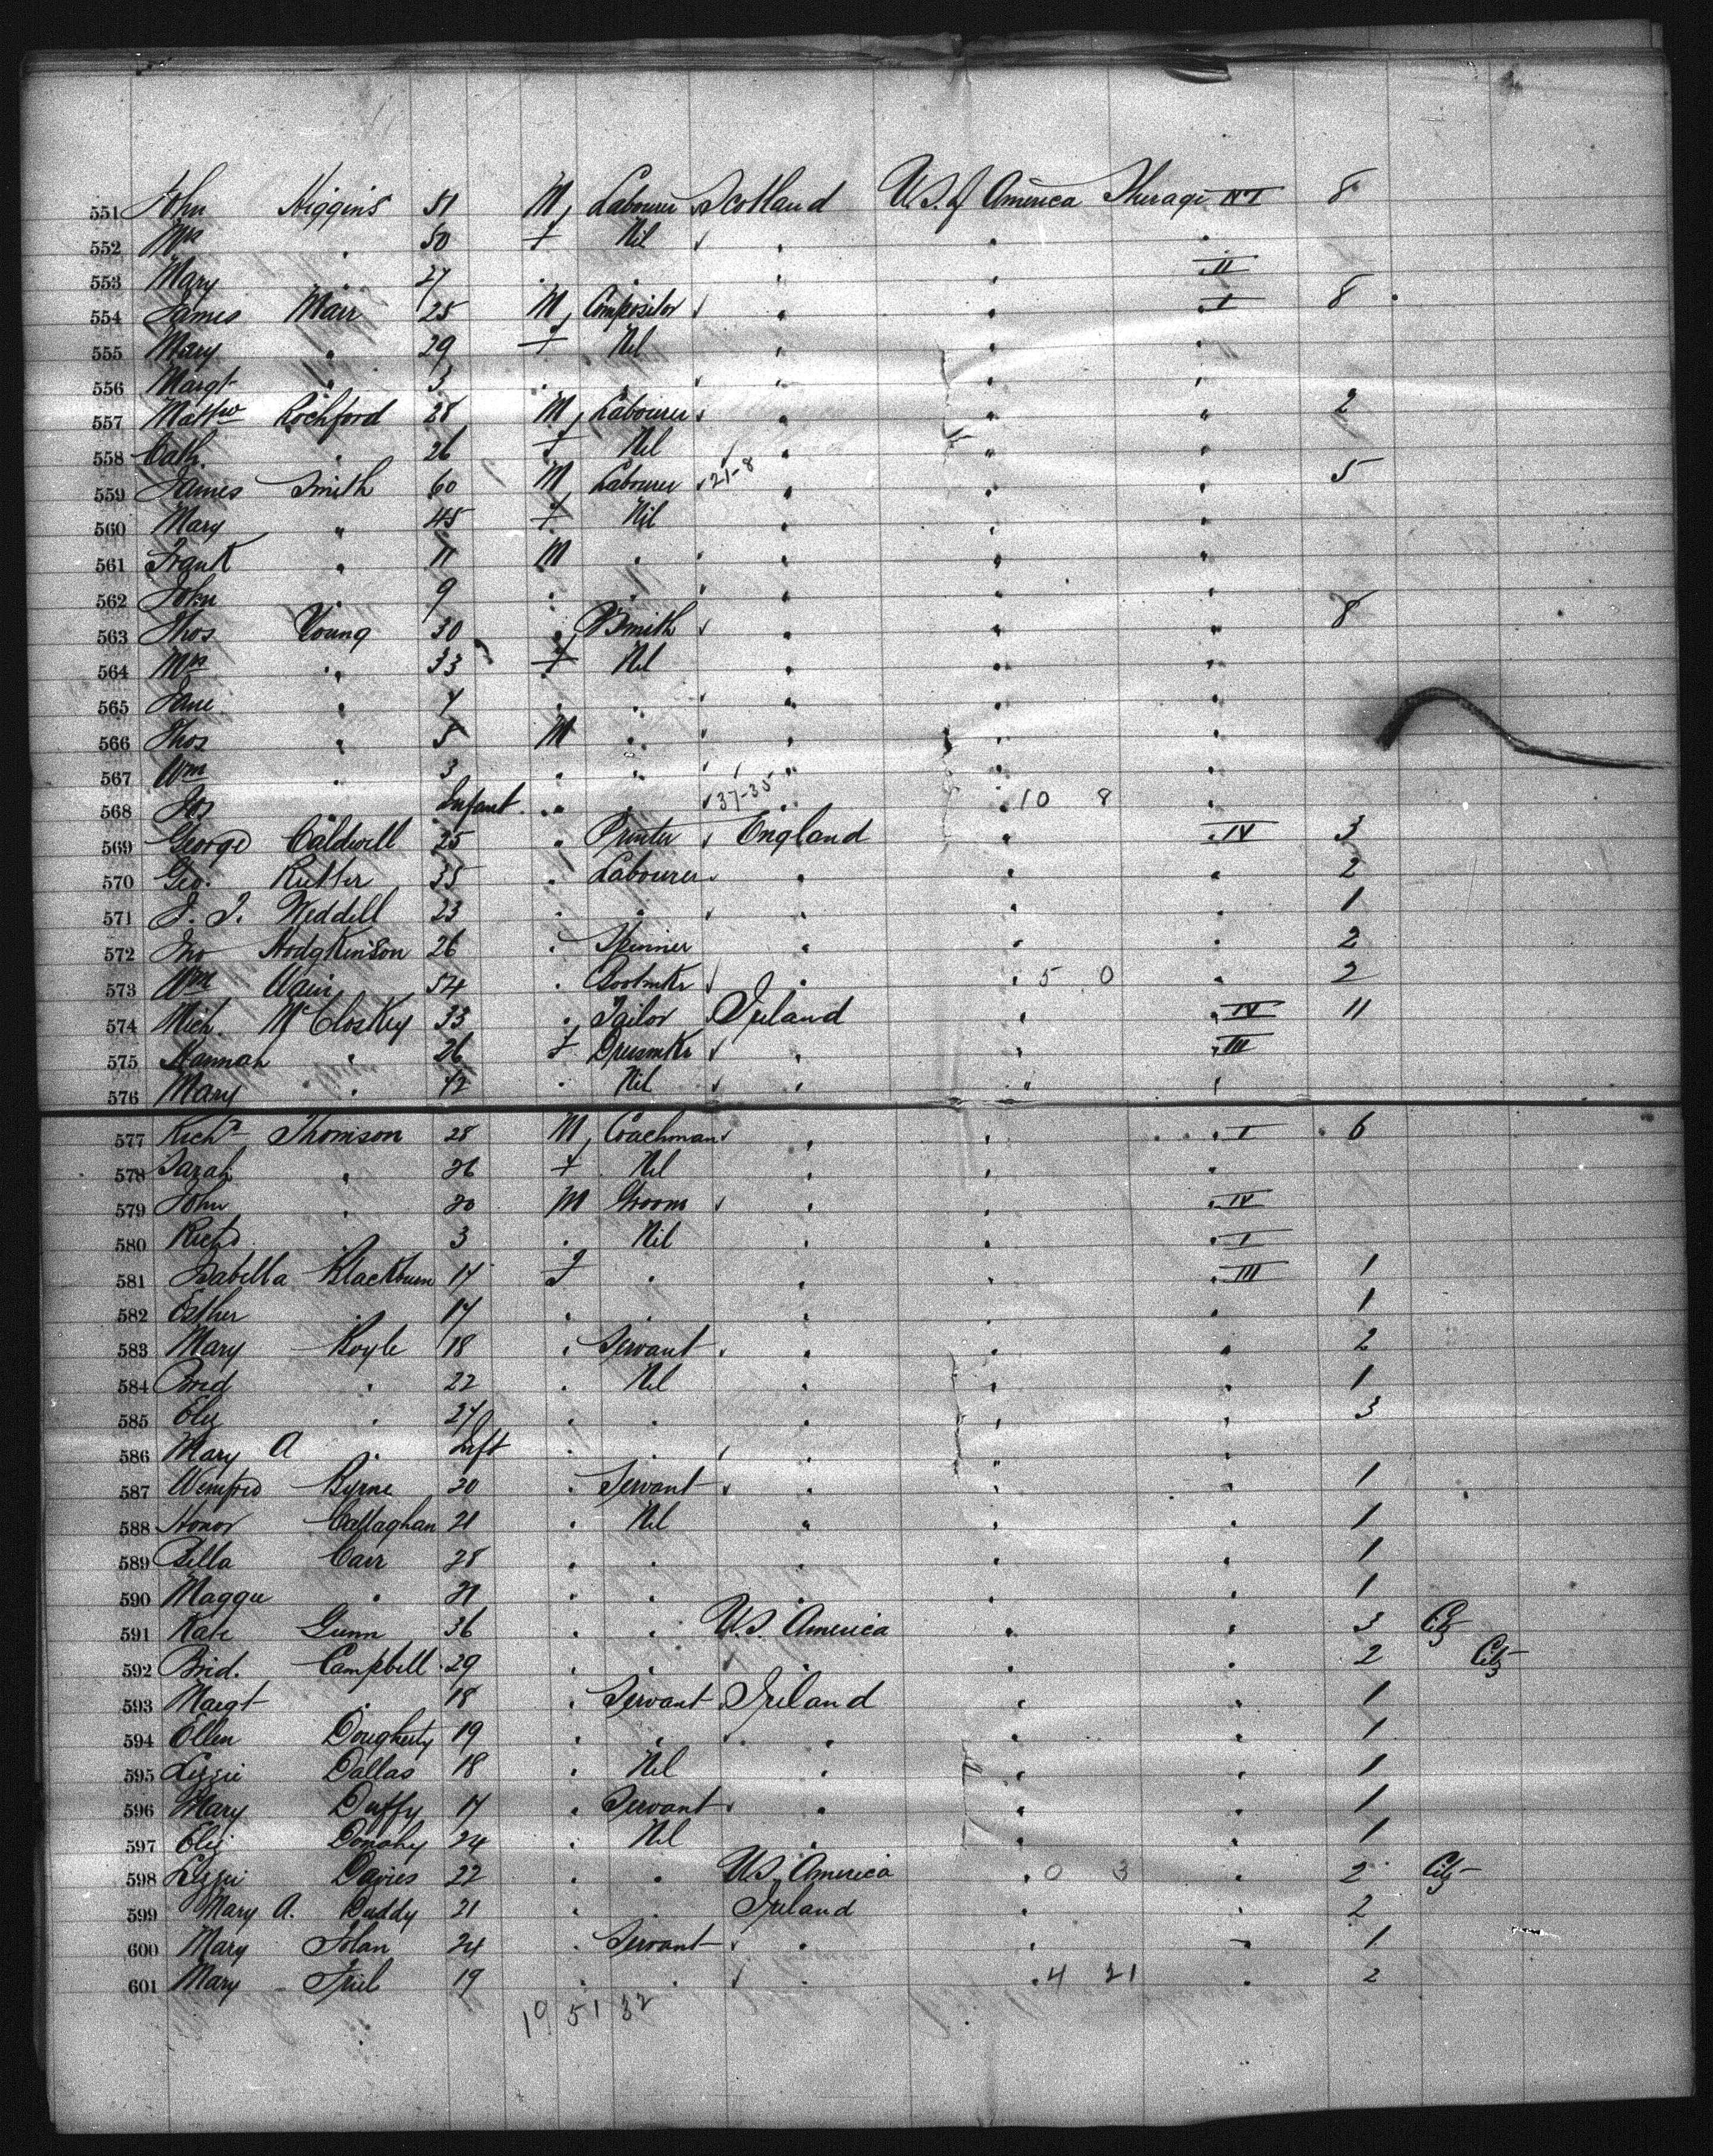 551 John Higgins 51 M Labourer Scotland U.S. of America Steerage 8
552 Mrs " 50 f Nil " " "
553 Mary " 27 " " " " II
554 James Mair 25 M Compositor " " I 8
555 Mary " 29 f Nil " " "
556 Margt " 3 " " " " "
557 Matthw Rochford 28 M Labourer " " " 2
558 Cath. " 26 f Nil " " "
559 James Smith 60 M Labourer 21-8 " " " 5
560 Mary " 45 f Nil " " "
561 Frank " 11 M " " " "
562 John " 9 " " " " "
563 Thos Young 30 " B Smith " " " 8
564 Mrs " 33 f Nil " " "
565 Jane " 7 " " " " "
566 Thos " 5 M " " " "
567 Wm " 3 " " " " "
568 Jos " Infant " " 37-35 " " 10 8 "
569 George Caldwell 25 " Printer England " IV 3
570 Geo. Rutter 35 " Labourer " " " 2
571 J. J. Weddell 23 " " " " " 1
572 Jno Hodgkinson 26 " Spinner " " " 2
573 Wm Wain 54 " Bootmkr " " 5 0 " 2
574 Mich. McCloskey 33 " Tailor Ireland " IV 11
575 Hannah " 26 f Dressmkr " " III
576 Mary " 12 " Nil " " "
577 Richd Thomson 28 M Coachman " " I 6
578 Sarah " 26 f Nil " " "
579 John " 20 M Groom " " IV
580 Richd " 3 " Nil " " I
581 Isabella Blackburn 17 f " " " III 1
582 Esther " 17 " " " " " 1
583 Mary Boyle 18 " Servant " " " 2
584 Brid " 22 " Nil " " " 1
585 Eliz " 27 " " " " " 3
586 Mary A " Inft " " " " "
587 Winifred Byrne 20 " Servant " " " 1
588 Honor Callaghan 21 " Nil " " " 1
589 Bella Carr 28 " " " " " 1
590 Maggie " 21 " " " " " 1
591 Kate Gunn 36 " " U.S. America " " 3 Citz
592 Brid. Campbell 29 " " " " " 2 Citz
593 Margt " 18 " Servant Ireland " " 1
594 Ellen Dougherty 19 " " " " " 1
595 Lizzie Dallas 18 " Nil " " " 1
596 Mary Duffy 17 " Servant " " " 1
597 Eliz Donahy 24 " Nil " " " 1
598 Lizzie Davies 22 " " U.S. America " 0 3 " 2 Citz
599 Mary A. Duddy 21 " " Ireland " " 2
600 Mary Folan 24 " Servant " " " 1
601 Mary Friel 19 " " " " 4 21 " 2
19 51 32